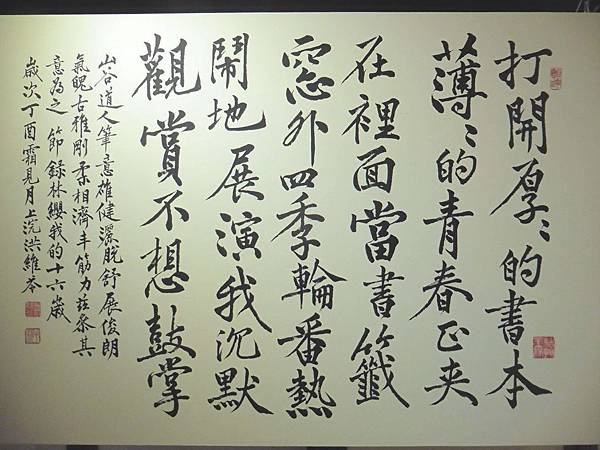 打開厚〻的書本
薄〻的青春正夹
在裡面當書籤
窓外四季輪番熱
鬧地展演我沉默
觀賞不想鼓掌
山谷道人筆意雄健灑脫舒展俊朗
氣魄古雅剛柔相濟丰筋力茲參其
意為之 節錄林纓我的十六歲
歲次丁酉霜見月上浣洪維岑